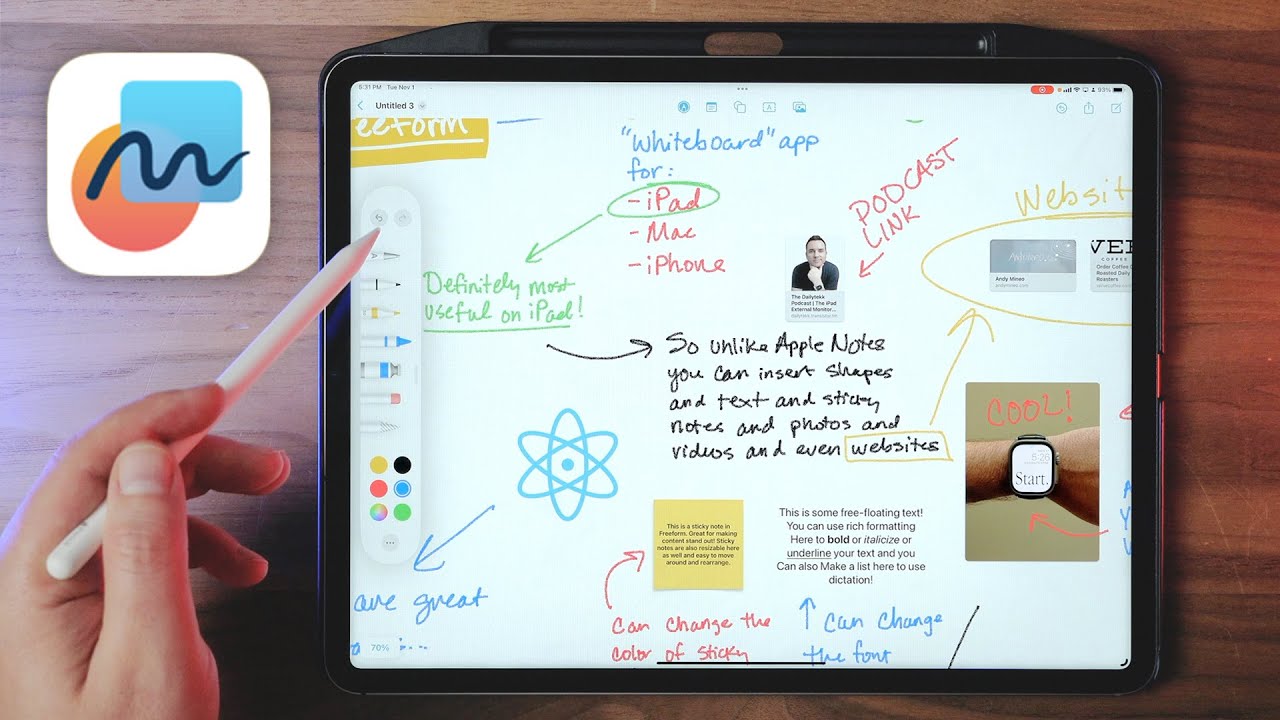 5:31 PM Tue Nov 1
93%
Untitled 3
eeform
"Whiteboard" app
for:
- iPad
- Mac
- iPhone
Definitely most
useful on iPad!
PODCAST
LINK
The Dailytekk
Podcast | The iPad
External Monitor...
Websit
Andy Mineo
andymineo.com
VE
COFFEE
Order Coffee
Roasted Daily
Roasters
So unlike Apple Notes
you can insert shapes
and text and sticky
notes and photos and
videos and even websites
COOL!
5:26
Start.
This is a sticky note in
Freeform. Great for making
content stand out! Sticky
notes are also resizable here
as well and easy to move
around and rearrange.
This is some free-floating text!
You can use rich formatting
Here to bold or italicize or
underline your text and you
Can also Make a list here to use
dictation!
are great
70%
Can change the
color of sticky
Can change
the font